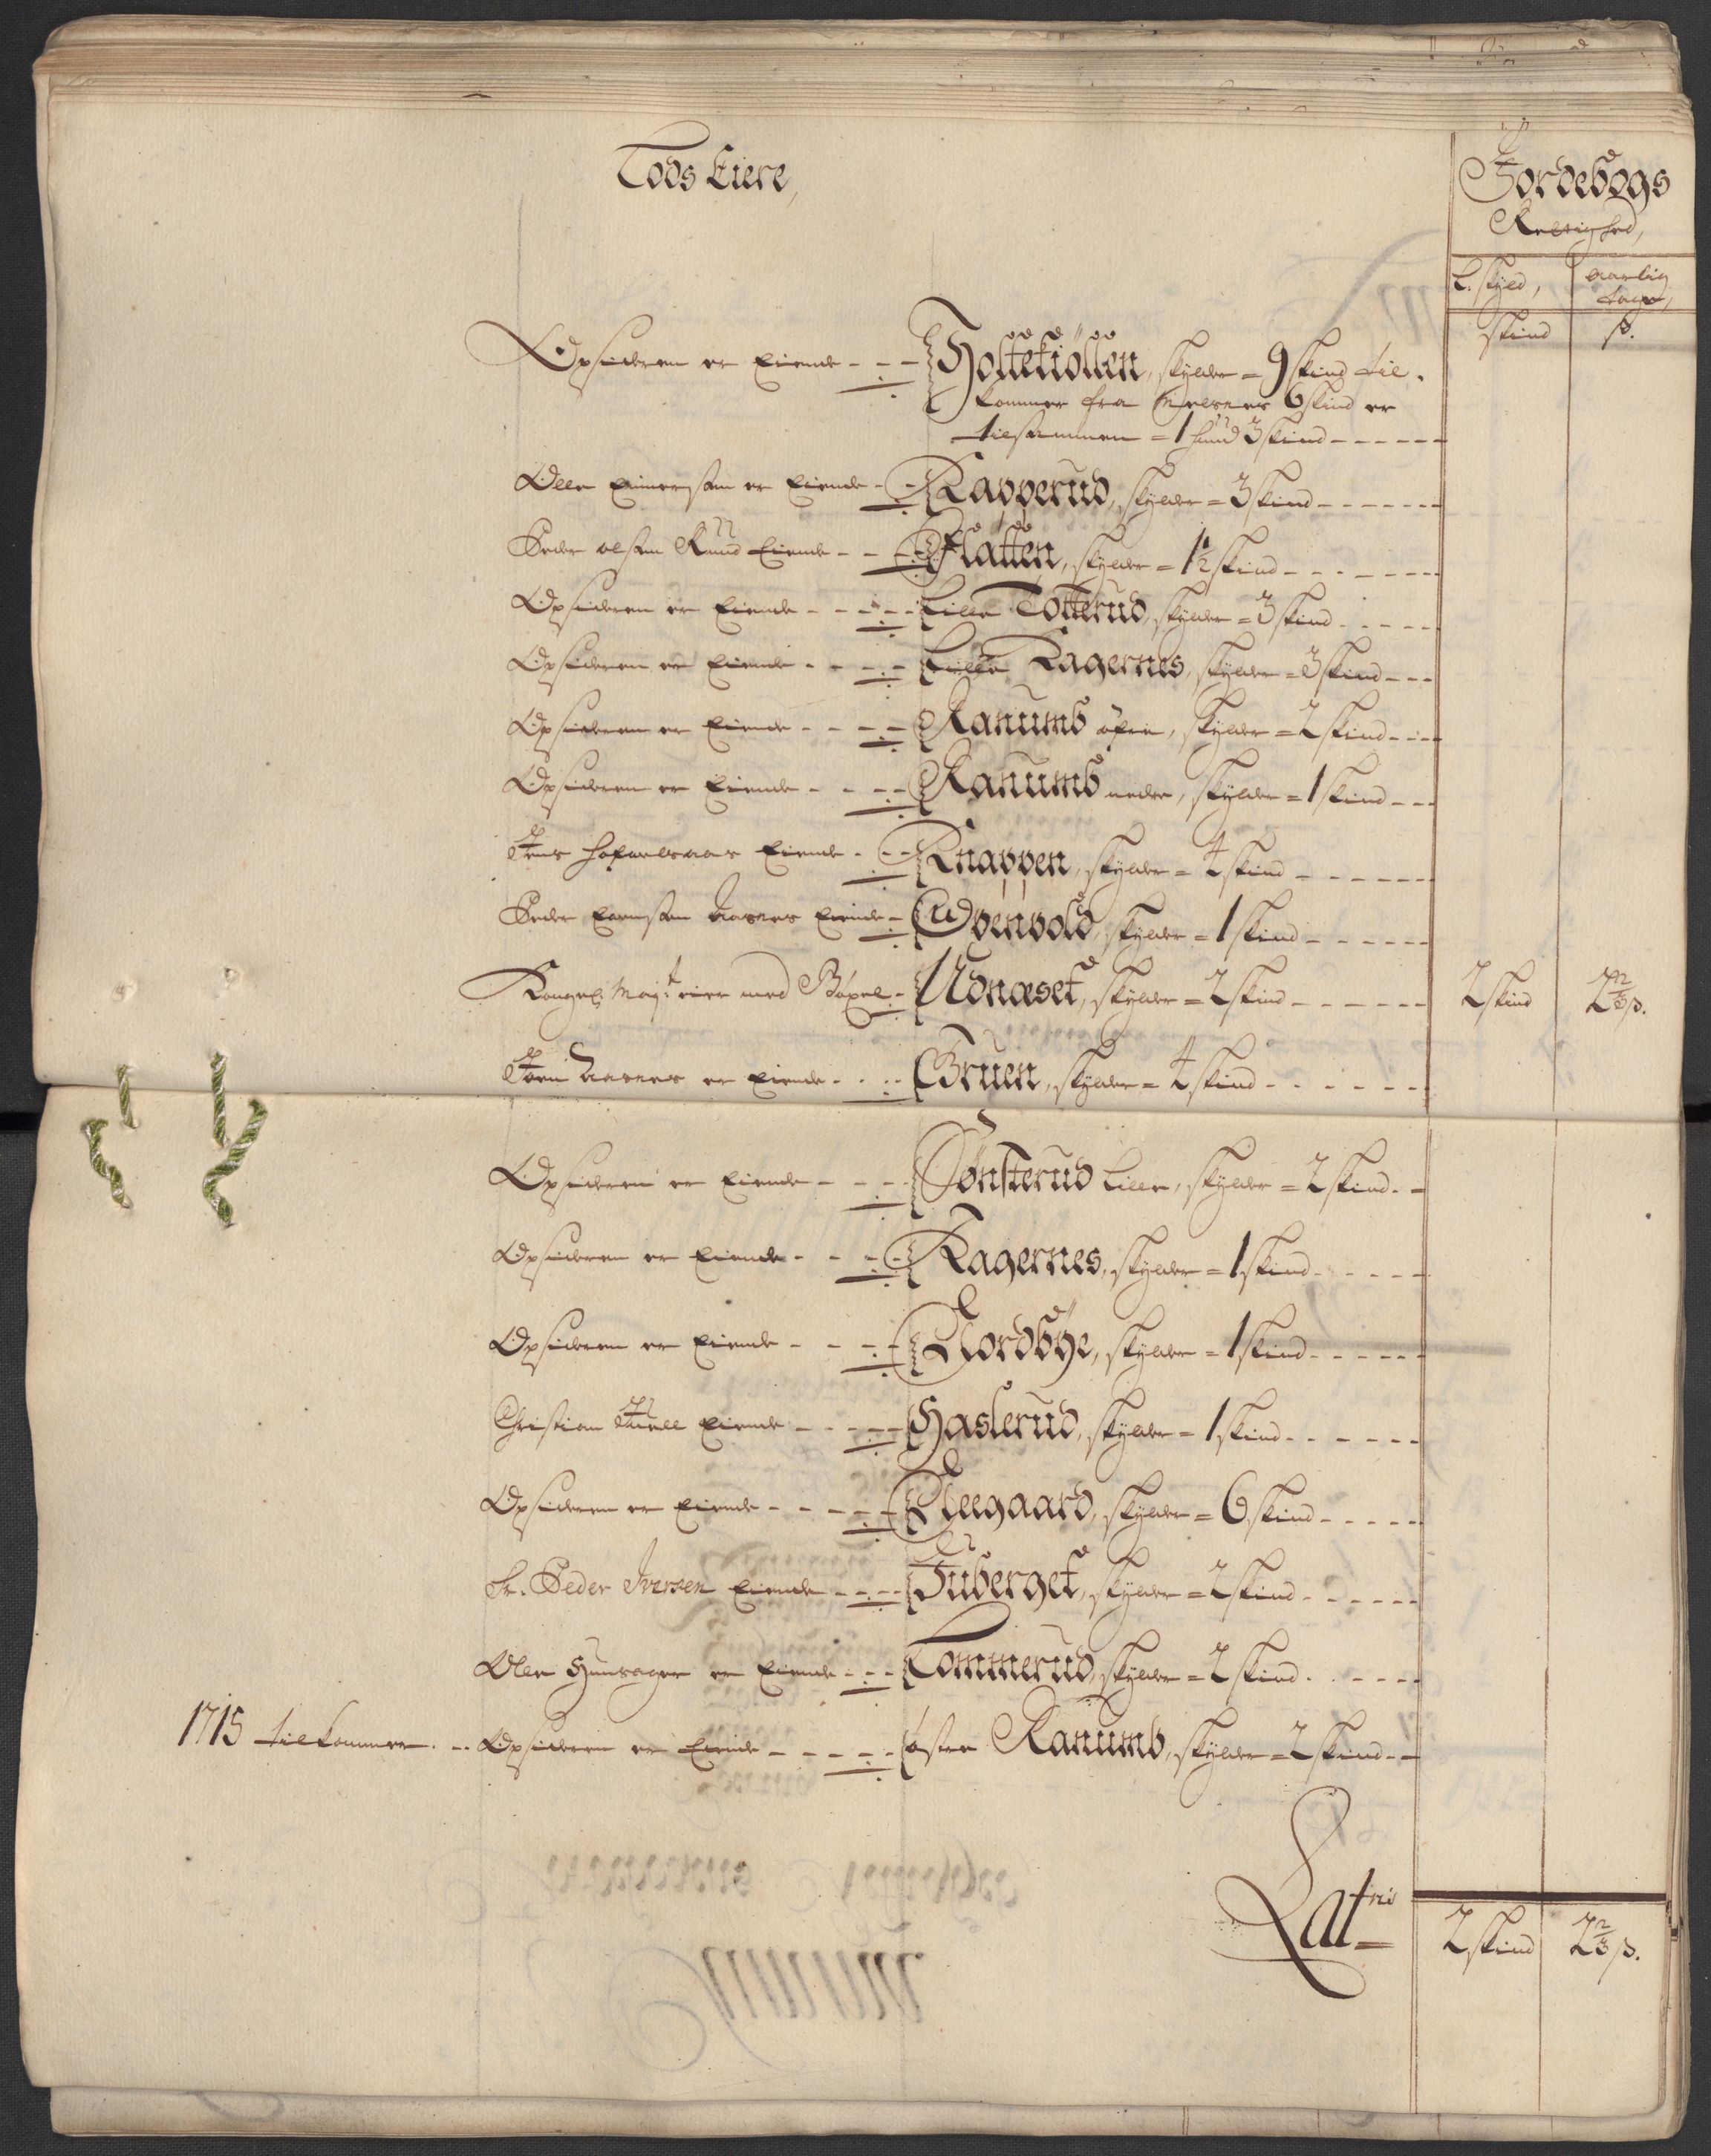 Iordebogs
Rettighed,
Lods Eiere,
L. skyld, aarlig
tage,
skind ß.
Opsideren er Eiende - - - Holtekiöllen, skylder = 9 skind til-
kommer fra 6 skind er
tilsammen = 1 hud 3 skind - - - - - -
Olle Einersen er Eiende - - Rapperud, skylder = 3 skind - - - - - - -
Peder olsen Ruud Eiende - - - Flatten, skylder = 1½ skind - - - - - - - -
Opsideren er Eiende - - - - - Lille Totterud, skylder = 3 skind - - - - -
Opsideren er Eiende - - - - Lille Kagernes, skylder = 3 skind - - -
Opsideren er Eiende - - - - Ranumb öfre, skylder = 2 skind - - - -
Opsideren er Eiende - - - - Ranumb nedre, skylder = 1 skind - - -
Jens Eiende - - - Knappen, skylder = 4 skind - - - - - - -
Peder Aasnes Eiende - Evenvold, skylder = 1 skind - - - - - -
Kongel: Maj:t eier med Böxel - Udnæset, skylder = 2 skind - - - - - - 2 skind 2⅔ ß.
Iörn Aasnes er Eiende - - - - Gruen, skylder = 4 skind - - - - - -
Opsideren er Eiende - - - - Sönsterud Lille, skylder = 2 skind - -
Opsideren er Eiende - - - - Kagernes, skylder = 1 skind - - - - -
Opsideren er Eiende - - - - Nordbÿe, skylder = 1 skind - - - - - -
Christian Juell Eiende - - - - - Haslerud, skylder = 1 skind - - - - - -
Opsideren er Eiende - - - - - Neegaard, skylder = 6 skind - - - - -
Sr. Peder Iversen Eiende - - - - Juberget, skylder = 2 skind - - - - - -
Olle er Eiende - - - Tommerud, skylder = 2 skind - - - - - -
1715 tilkommer - - Opsideren er Eiende - - - - - öster Ranumb, skylder = 2 skind - -
Lat:ris 2 skind 2⅔ ß.